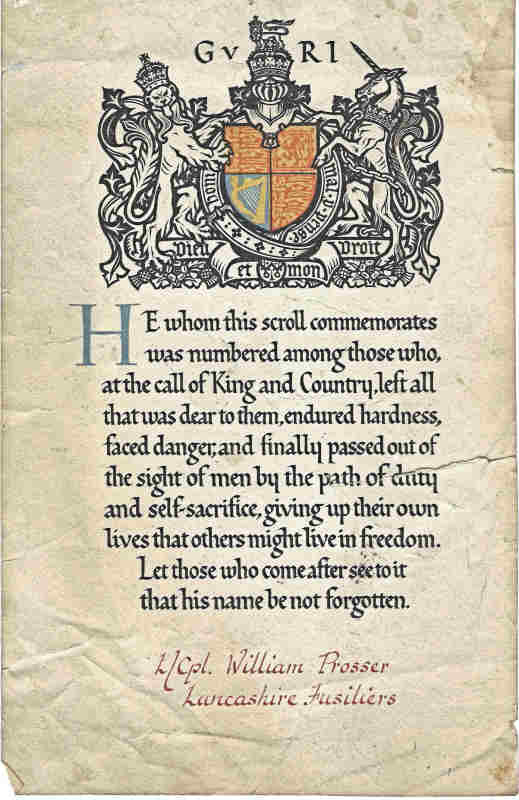 G V R I
Honi soit qui mal y pense
Dieu et mon Droit
HE whom this scroll commemorates
was numbered among those who,
at the call of King and Country, left all
that was dear to them, endured hardness,
faced danger, and finally passed out of
the sight of men by the path of duty
and self-sacrifice, giving up their own
lives that others might live in freedom.
Let those who come after see to it
that his name be not forgotten.
L/Cpl. William Prosser
Lancashire Fusiliers